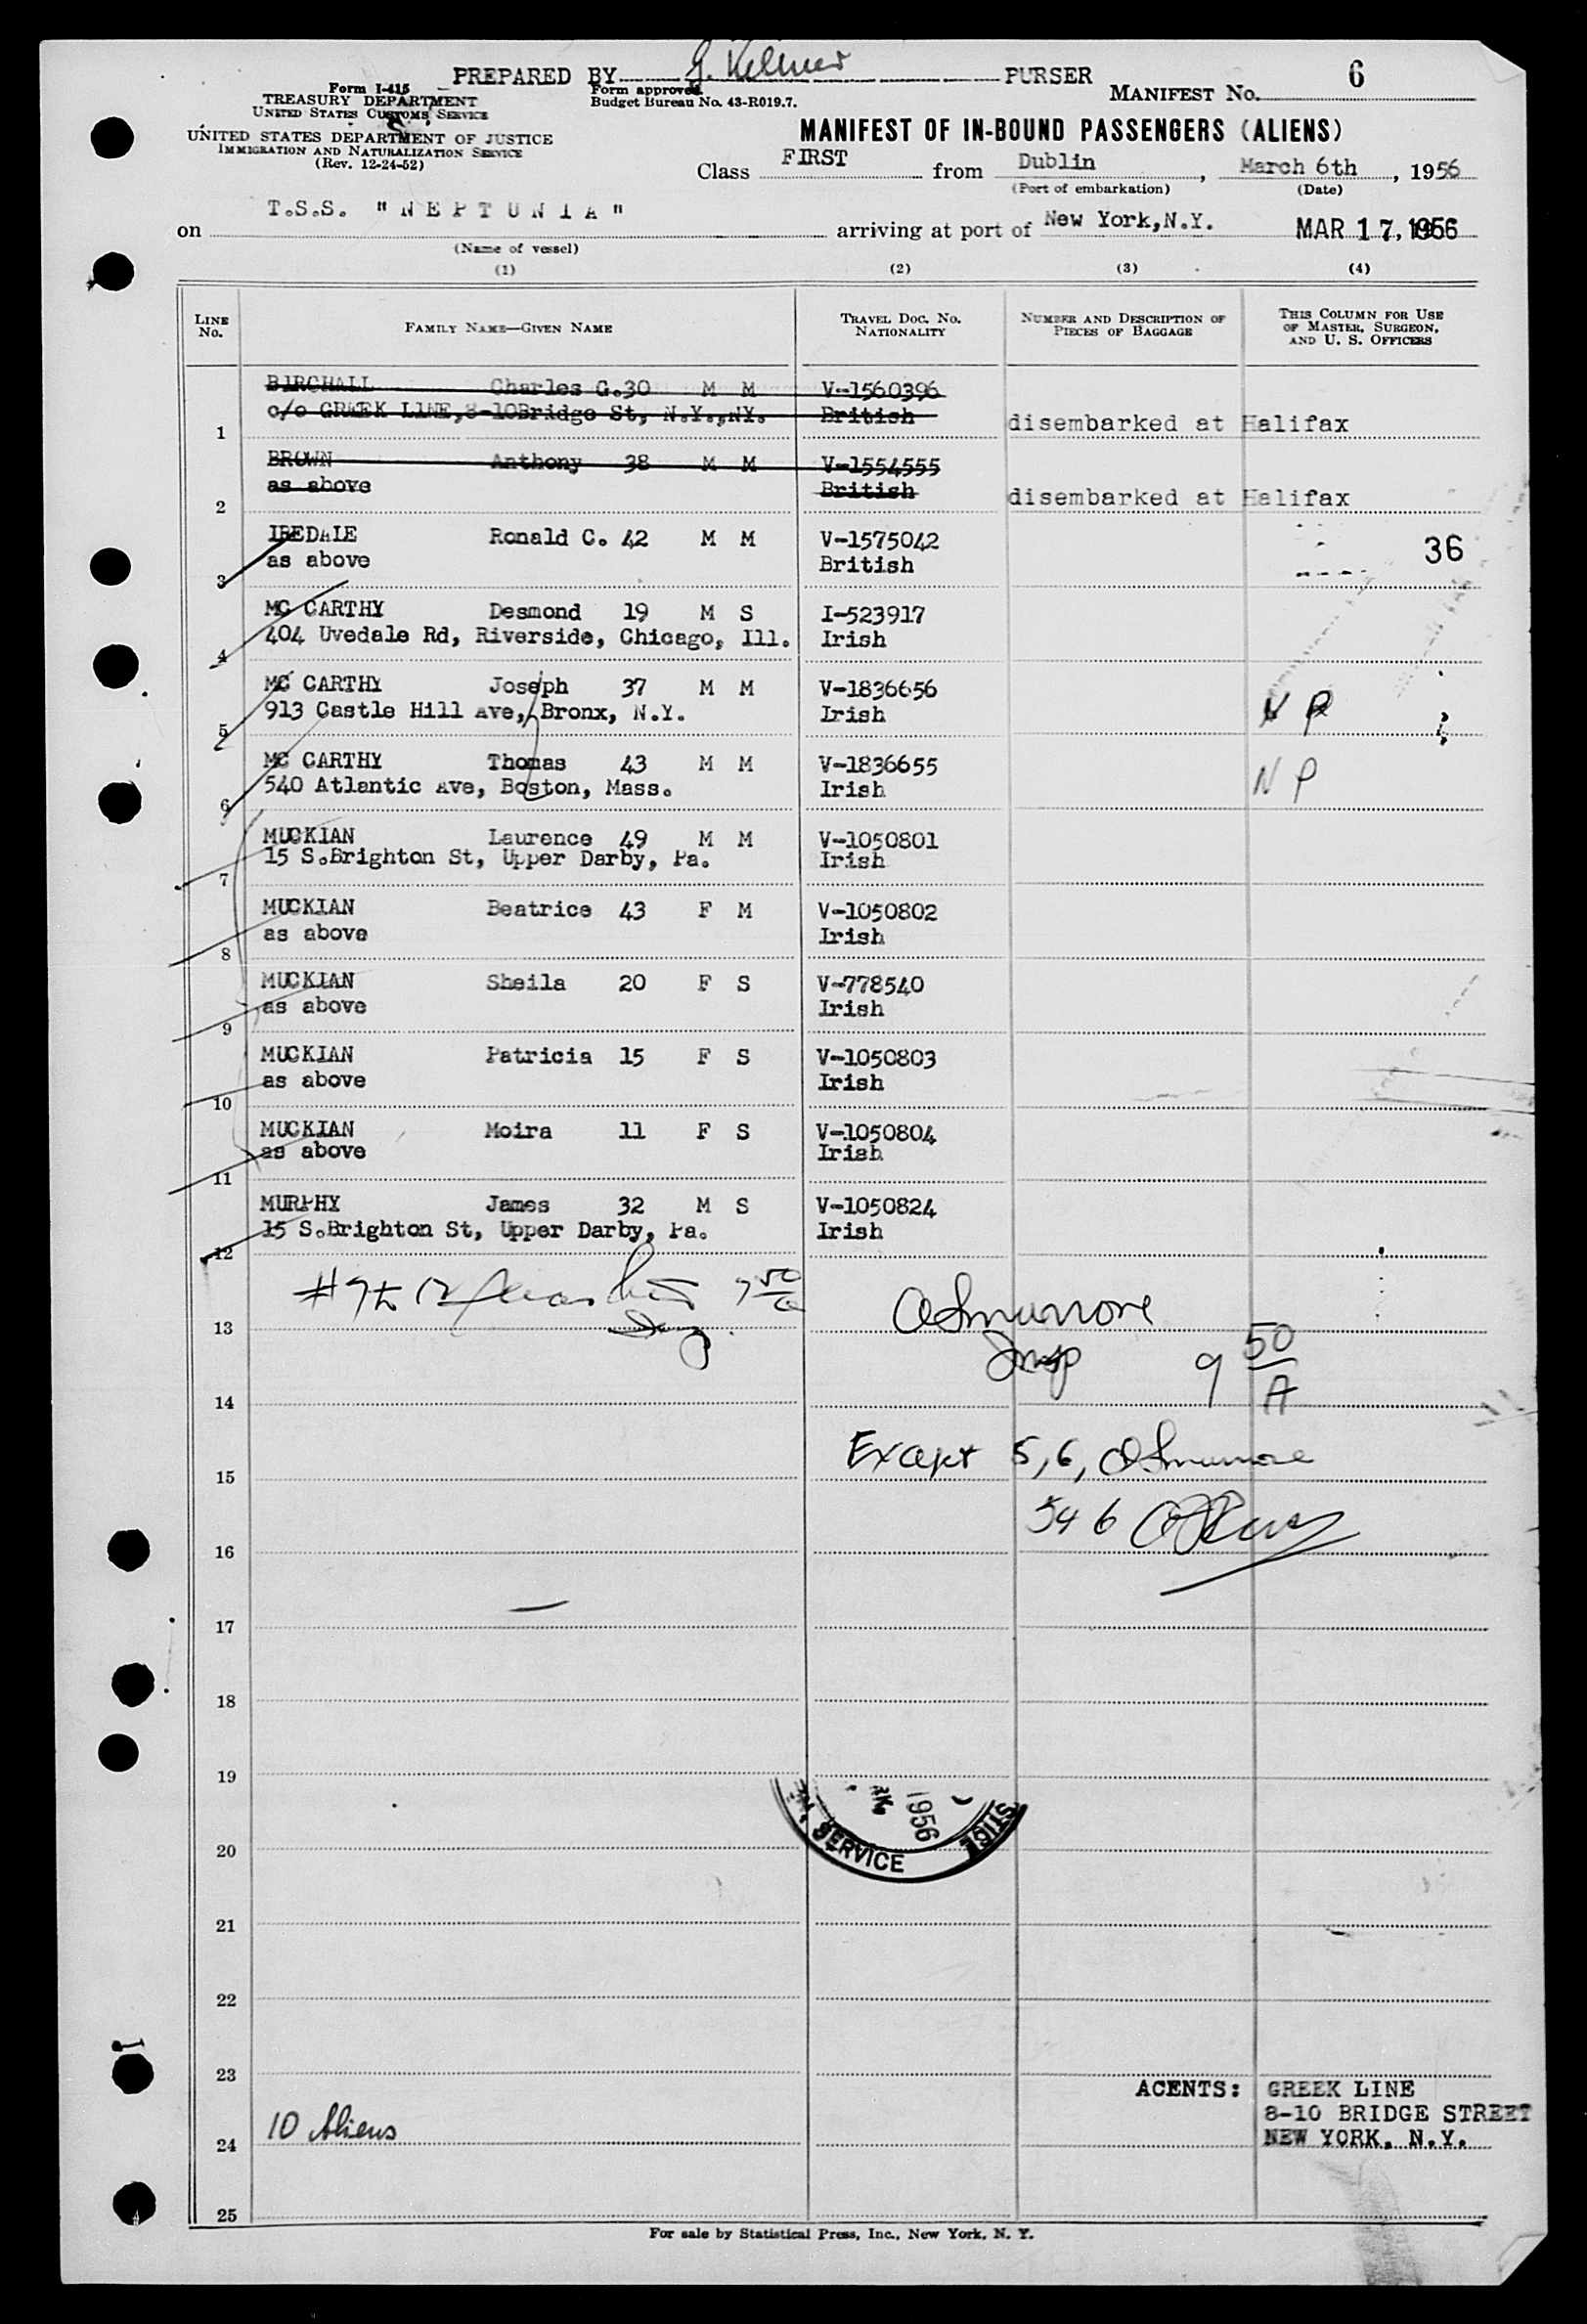 PREPARED BY G. Kelmer PURSER
Form I-415
TREASURY DEPARTMENT
UNITED STATES CUSTOMS SERVICE
UNITED STATES DEPARTMENT OF JUSTICE
IMMIGRATION AND NATURALIZATION SERVICE
(Rev. 12-24-52)
Form approved.
Budget Bureau No. 43-R019.7.
MANIFEST No. 6
MANIFEST OF IN-BOUND PASSENGERS (ALIENS)
Class FIRST from Dublin, March 6th, 1956
(Port of embarkation) (Date)
on T.S.S. "NEPTUNIA" arriving at port of New York,N.Y. MAR 17, 1956
(Name of vessel)
(1) (2) (3) (4)
LINE No. FAMILY NAME—GIVEN NAME TRAVEL DOC. NO. NATIONALITY NUMBER AND DESCRIPTION OF PIECES OF BAGGAGE THIS COLUMN FOR USE OF MASTER, SURGEON, AND U. S. OFFICERS
BIRCHALL Charles G. 30 M M V-1560396
c/o GREEK LINE,8-10Bridge St, N.Y.,NY. British
1 disembarked at Halifax
BROWN Anthony 38 M M V-1554555
as above British
2 disembarked at Halifax
IREDALE Ronald C. 42 M M V-1575042 36
as above British
3
MC CARTHY Desmond 19 M S I-523917
404 Uvedale Rd, Riverside, Chicago, Ill. Irish
4
MC CARTHY Joseph 37 M M V-1836656
913 Castle Hill Ave, Bronx, N.Y. Irish N P
5
MC CARTHY Thomas 43 M M V-1836655
540 Atlantic Ave, Boston, Mass. Irish N P
6
MUCKIAN Laurence 49 M M V-1050801
15 S.Brighton St, Upper Darby, Pa. Irish
7
MUCKIAN Beatrice 43 F M V-1050802
as above Irish
8
MUCKIAN Sheila 20 F S V-778540
as above Irish
9
MUCKIAN Patricia 15 F S V-1050803
as above Irish
10
MUCKIAN Moira 11 F S V-1050804
as above Irish
11
MURPHY James 32 M S V-1050824
15 S.Brighton St, Upper Darby, Pa. Irish
12
13
Insp 9 50/A
14
Except 5, 6,
15
5 & 6
16
17
18
19
1956
SERVICE
20
21
22
23
AGENTS: GREEK LINE
8-10 BRIDGE STREET
NEW YORK, N.Y.
10 Aliens
24
25
For sale by Statistical Press, Inc., New York, N. Y.